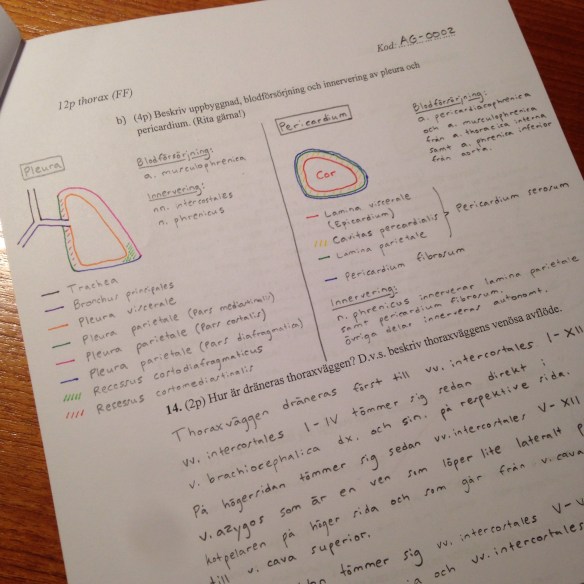 Kod: AG-0002
12p thorax (FF)
b) (4p) Beskriv uppbyggnad, blodförsörjning och innervering av pleura och
pericardium. (Rita gärna!)
Pleura
Blodförsörjning:
a. musculophrenica
Innervering:
nn. intercostales
n. phrenicus
Trachea
Bronchus principales
Pleura viscerale
Pleura parietale (Pars mediastinalis)
Pleura parietale (Pars costalis)
Pleura parietale (Pars diafragmatica)
Recessus costodiafragmaticus
Recessus costomediastinalis
Pericardium
Blodförsörjning:
a. pericardiacophrenica
och a. musculophrenica
från a. thoracica interna
samt a. phrenica inferior
från aorta.
Cor
Lamina viscerale
(Epicardium)
Cavitas percardialis
Lamina parietale
Pericardium serosum
Pericardium fibrosum
Innervering:
n. phrenicus innerverar lamina parietale
samt pericardium fibrosum.
Övriga delar innerveras autonomt.
14. (2p) Hur är dräneras thoraxväggen? D.v.s. beskriv thoraxväggens venösa avflöde.
Thoraxväggen dräneras först till vv. intercostales I-XII
vv. intercostales I-IV tömmer sig sedan direkt i
v. brachiocephalica dx. och sin. på respektive sida.
På högersidan tömmer sig sedan vv. intercostales V-XII
v. azygos som är en ven som löper lite lateralt
kotpelaren på höger sida och som går från v. cava
till v. cava superior.
tömmer sig vv. intercostales
sig och vv. intercostales